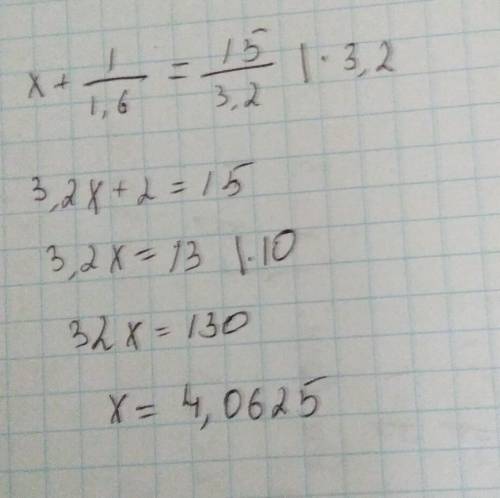 x + 1/1,6 = 15/3,2 |· 3,2
3,2x + 2 = 15
3,2x = 13 |·10
32x = 130
x = 4,0625